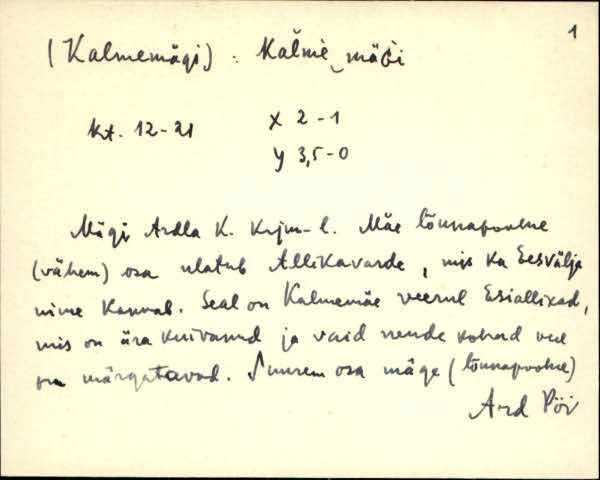 1
(Kalmemägi) : Kalme‿mäǵi
kt. 12-21 x 2-1
y 3,5-0
Mägi Ardla k. krjm-l. Mäe lõunapoolne
(vähem) osa ulatub Allikavarde, mis ka Eesvälja
nime kannab. Seal on Kalmemäe veerul Esiallikad,
mis on ära kuivanud ja vaid nende kohad veel
on märgatavad. Suurem osa mäge (lõunapoolne)
Ard Pöi